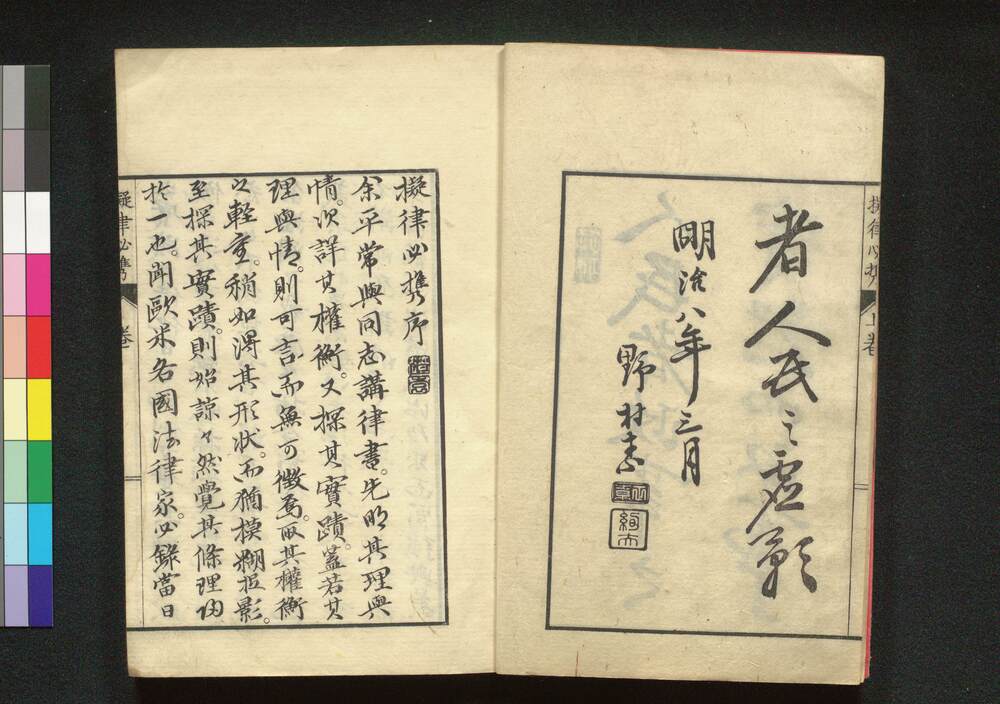 擬律必携 上卷
者人民之
明治八年三月
野村素
擬律必携序
余平常與同志講律書。先明其理與
情。次詳其權衡。又探其實蹟。蓋若其
理與情。則可言而無可徵焉。而其權衡
之輕重。稍如得其形狀。而猶模糊捉影。
至探其實蹟。則始諒々然覺其條理歸
於一也。聞歐米各國法律家。必錄當日
擬律必携 卷